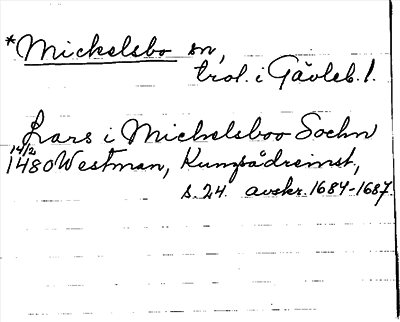 *Mickelsbo sn,
trol. i Gävleb. l.
Lars i Michelsboo Sochn
14/2
1480 Westman,
s. 24. avskr. 1684-1687.